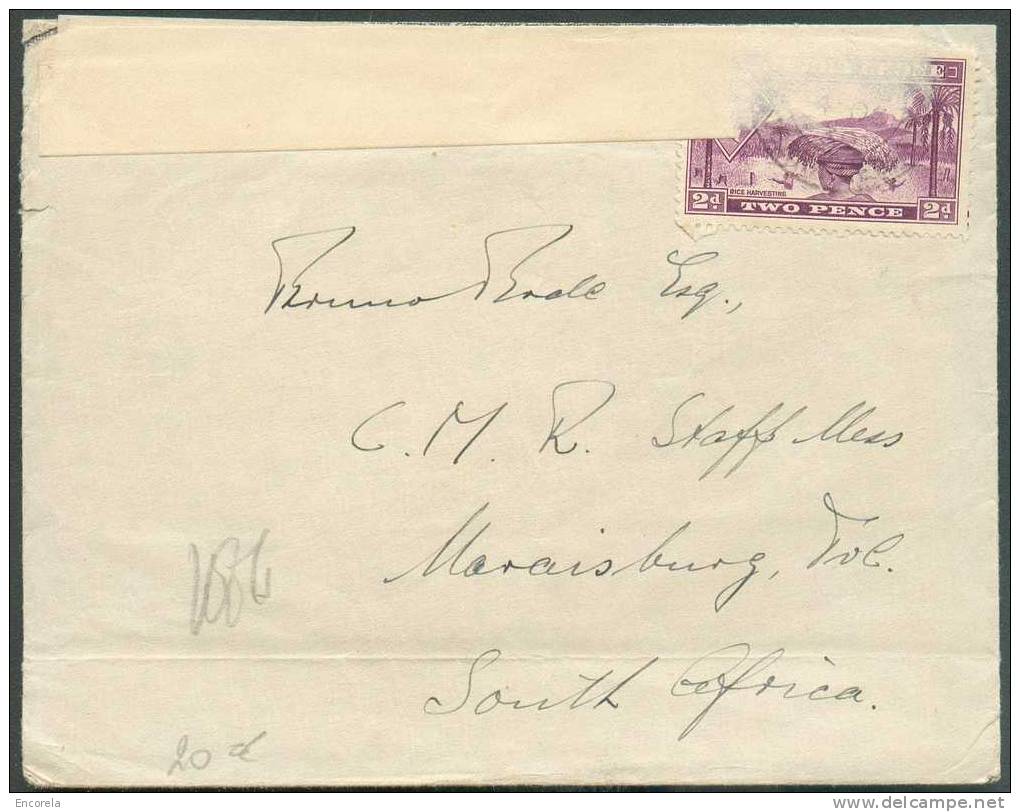 E
RICE HARVESTING
2d TWO PENCE 2d
Bruno Esq.,
C. M. R. Staff Mess
Maraisburg, Tvl.
South Africa.
20
© Encorela
www.delcampe.net